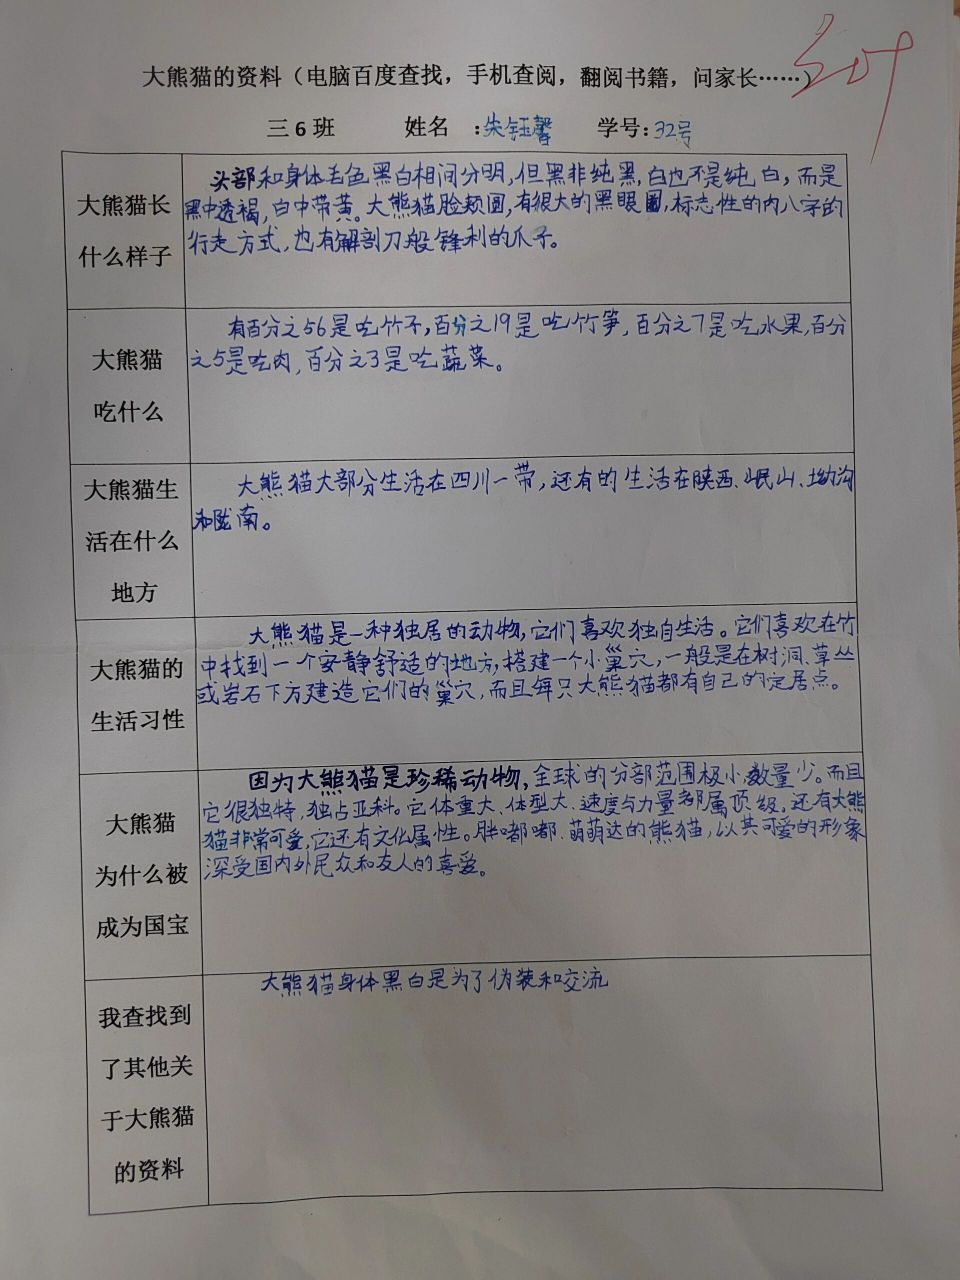 大熊猫的资料（电脑百度查找，手机查阅，翻阅书籍，问家长……）
三6班 姓名 ：朱钰馨 学号：32号
大熊猫长
什么样子
头部和身体毛色黑白相间分明，但黑非纯黑，白也不是纯白，而是
黑中透褐，白中带黄。大熊猫脸颊圆，有很大的黑眼圈，标志性的内八字的
行走方式，也有解剖刀般锋利的爪子。
大熊猫
吃什么
有百分之56是吃竹子，百分之19是吃竹笋，百分之7是吃水果，百分
之5是吃肉，百分之3是吃蔬菜。
大熊猫生
活在什么
地方
大熊猫大部分生活在四川一带，还有的生活在陕西、岷山、坳沟
和陇南。
大熊猫的
生活习性
大熊猫是一种独居的动物，它们喜欢独自生活。它们喜欢在竹
中找到一个安静舒适的地方，搭建一个小巢穴，一般是在树洞、草丛
或岩石下方建造它们的巢穴，而且每只大熊猫都有自己的定居点。
大熊猫
为什么被
成为国宝
因为大熊猫是珍稀动物，全球的分部范围极小，数量少。而且
它很独特，独占亚科。它体重大、体型大、速度与力量都属顶级。还有大熊
猫非常可爱，它还有文化属性。胖嘟嘟、萌萌达的熊猫，以其可爱的形象
深受国内外民众和友人的喜爱。
我查找到
了其他关
于大熊猫
的资料
大熊猫身体黑白是为了伪装和交流